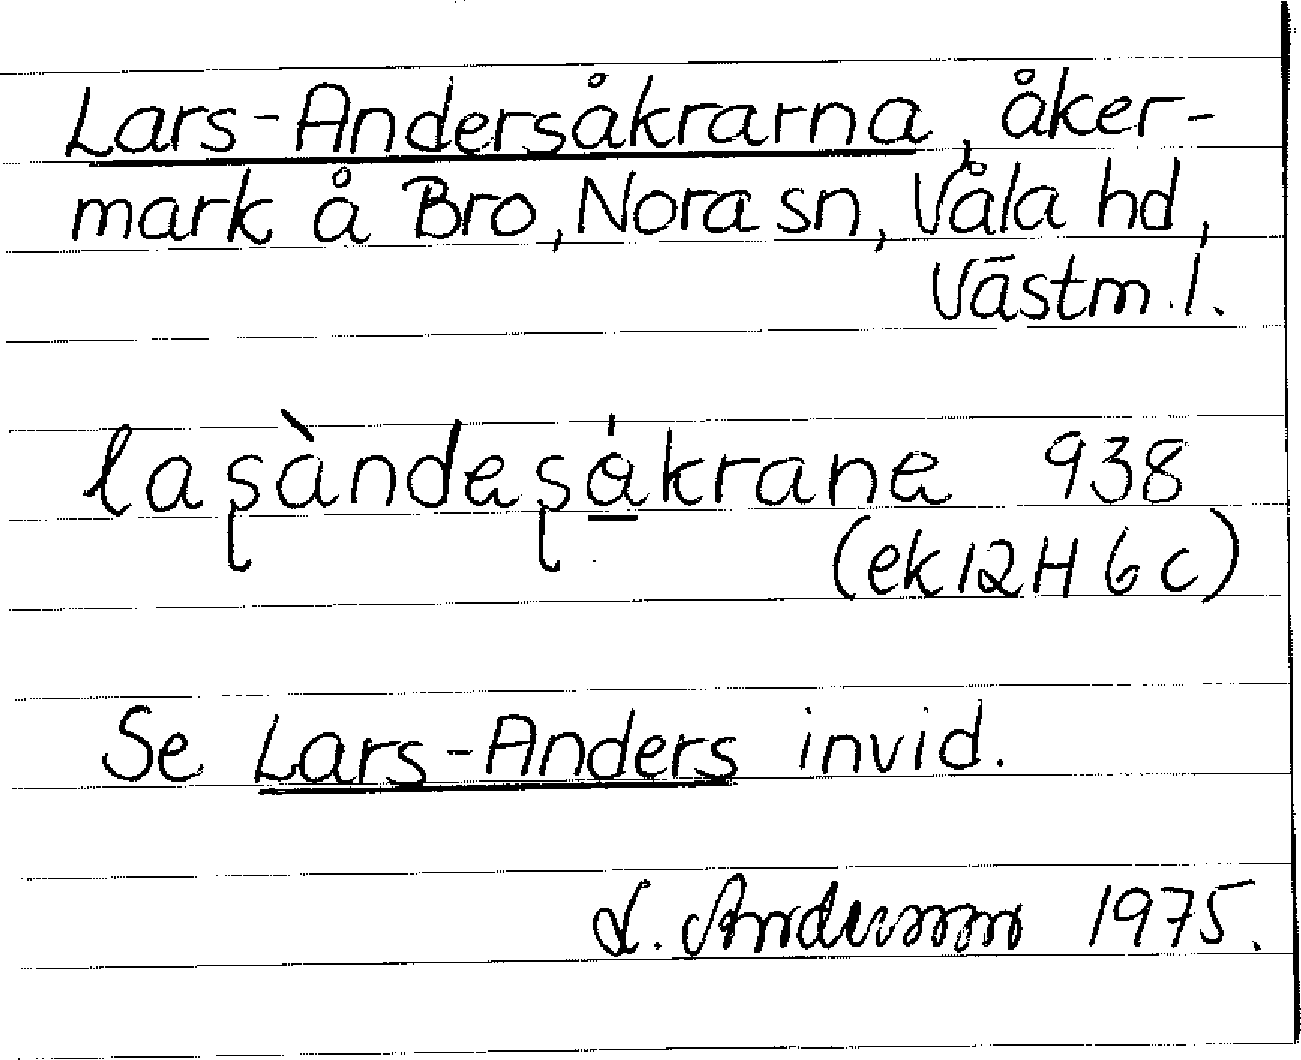 Lars-Andersåkrarna, åker-
mark å Bro, Nora sn, Våla hd,
Västm. l.
laʂàndeʂákrane 938
(ek 12H 6c)
Se Lars-Anders invid.
L. Andersson 1975.